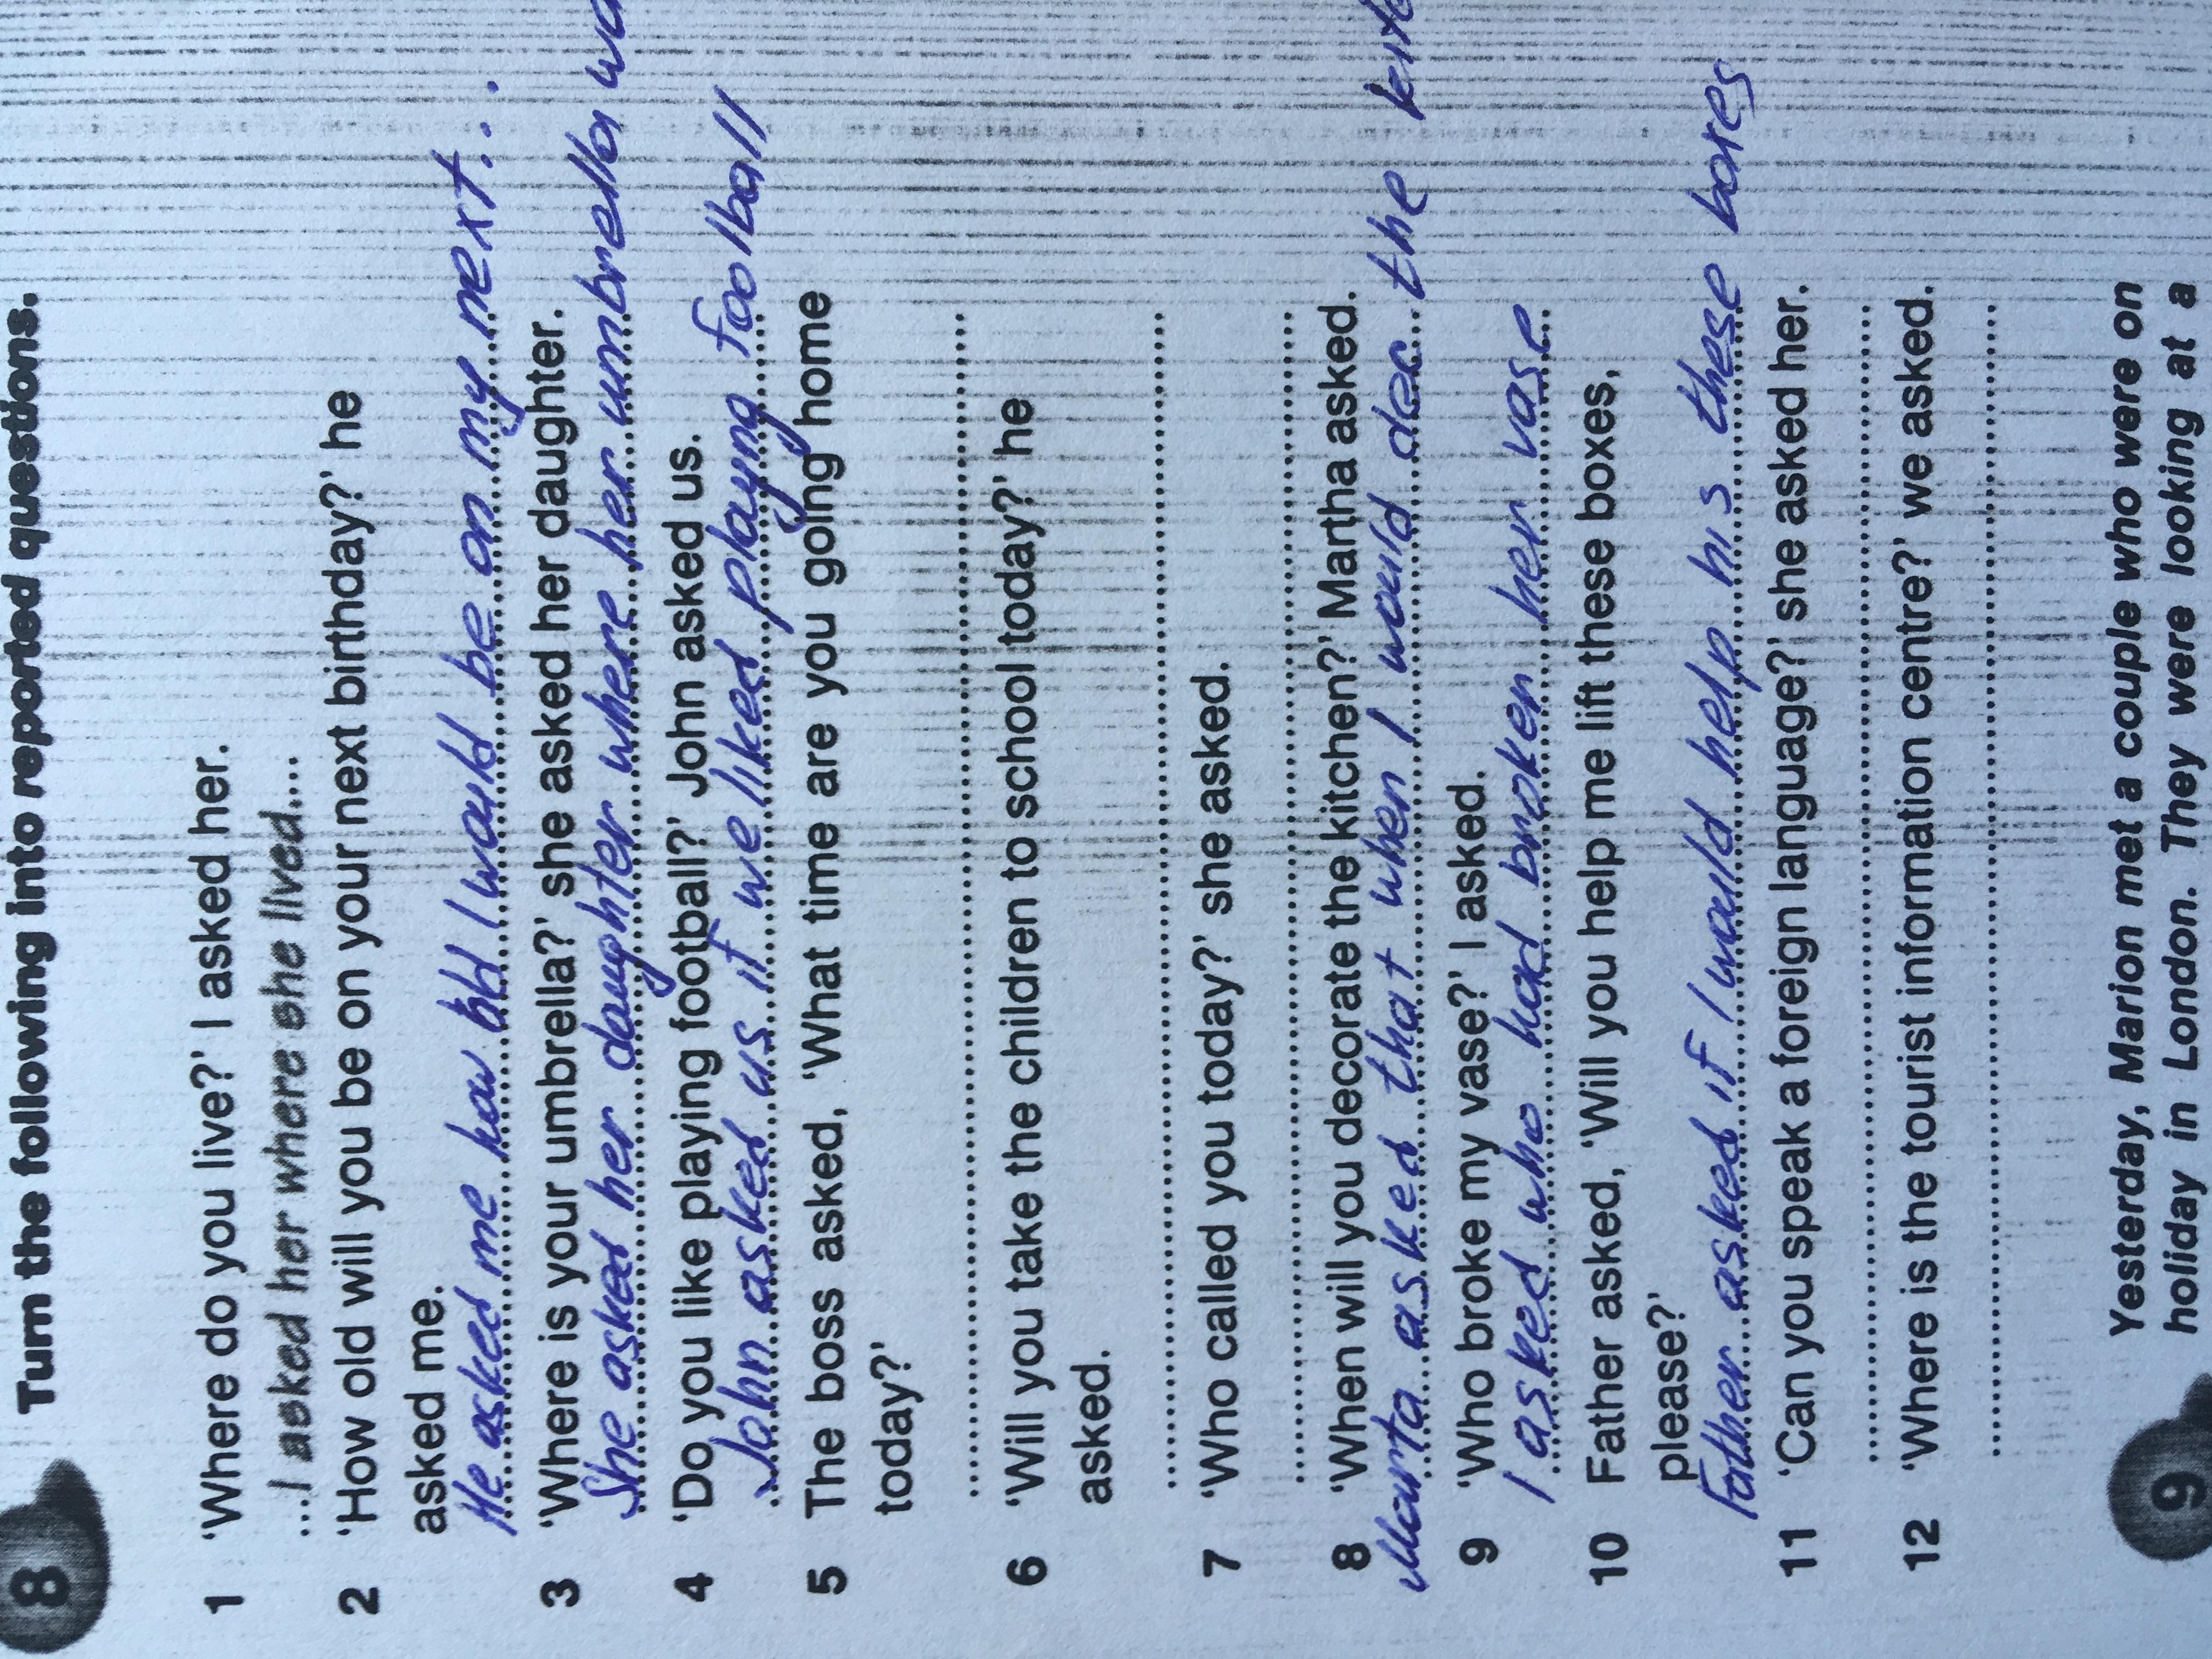 8 Turn the following into reported questions.
1 ‘Where do you live?’ I asked her.
...I asked her where she lived....
2 ‘How old will you be on your next birthday?’ he
asked me.
He asked me how old I would be on my next...
3 ‘Where is your umbrella?’ she asked her daughter.
She asked her daughter where her umbrella wa
4 ‘Do you like playing football?’ John asked us.
John asked us if we liked playing foolball
5 The boss asked, ‘What time are you going home
today?’
6 ‘Will you take the children to school today?’ he
asked.
7 ‘Who called you today?’ she asked.
8 ‘When will you decorate the kitchen?’ Martha asked.
Marta asked that when I would dec the
9 ‘Who broke my vase?’ I asked.
I asked who had broken her vase
10 Father asked, ‘Will you help me lift these boxes,
please?’
Father asked if I would help his these boxes
11 ‘Can you speak a foreign language?’ she asked her.
12 ‘Where is the tourist information centre?’ we asked.
9 Yesterday, Marion met a couple who were on
holiday in London. They were looking at a